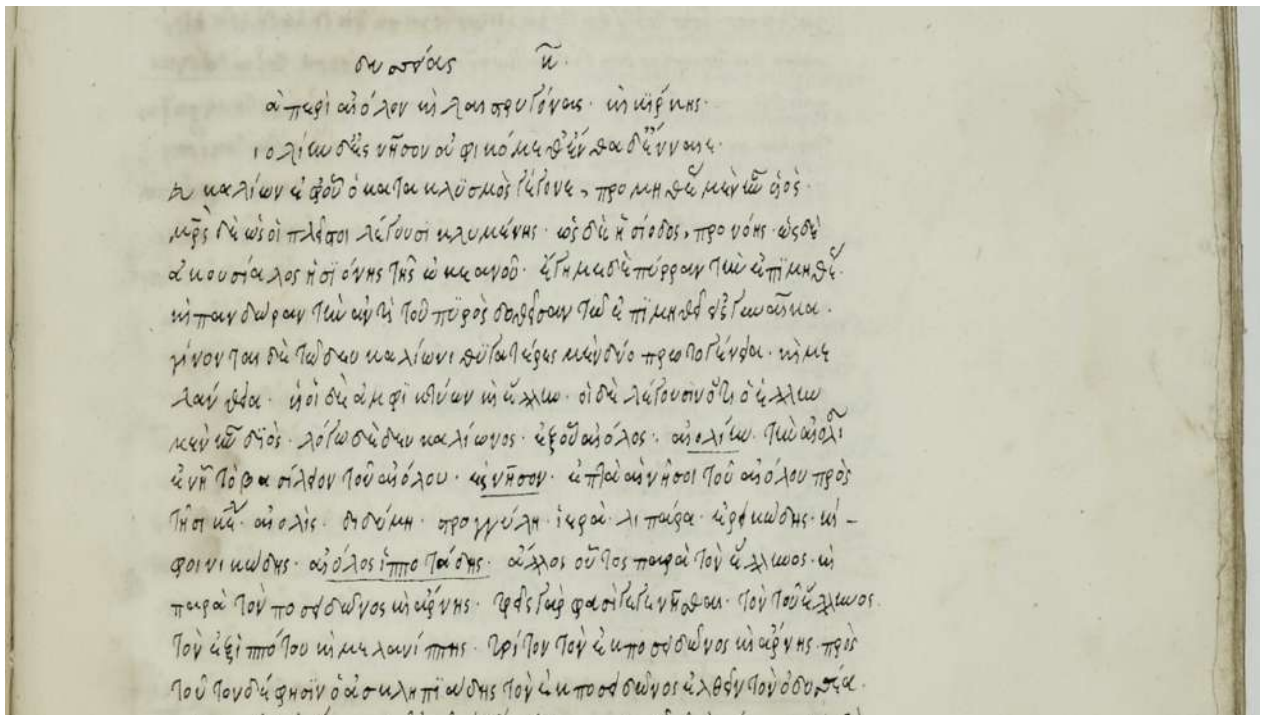 ὀδυσσείας κ̅.
τὰ περὶ αἰόλου καὶ λαιστρυγόνας · καὶ κίρκης ·
αἰολίην δ' ἐς νῆσον ἀφικόμεθ' ἔνθα δ' ἔναιε ·
δευκαλίων ἐφ' οὗ ὁ κατακλυσμὸς γέγονε, προμηθέως μὲν ἦν υἱός ·
μητρὸς δὲ ὡς οἱ πλεῖστοι λέγουσι κλυμένης · ὡς δὲ ἡσίοδος, προνόης · ὡς δὲ
ἀκουσίλαος ἡσιόνης τῆς ὠκεανοῦ · ἔγημε δὲ πύρραν τὴν ἐπιμηθέως
καὶ πανδώρας τὴν ἀντὶ τοῦ πυρὸς δοθεῖσαν τῷ ἐπιμηθεῖ εἰς γυναῖκα ·
γίνονται δὲ τῷ δευκαλίωνι θυγατέρες μὲν δύο πρωτογένεια · καὶ με
λάνθεια · υἱοὶ δὲ ἀμφικτύων καὶ ἕλλην · οἱ δὲ λέγουσιν ὅτι ὁ ἕλλην
μὲν ἦν διός · λόγῳ δὲ δευκαλίωνος · ἐξ οὗ αἰόλος · αἰολίην · τὴν αἰολί
ἐν ᾗ τὸ βασίλειον τοῦ αἰόλου · ἐς νῆσον · ἑπτὰ αἱ νῆσοι τοῦ αἰόλου πρὸς
τῇ σικελ · αἰολὶς · διδύμη · στρογγύλη · ἱερὰ · λιπάρα · ἐρεικώδης · καὶ –
φοινικώδης · αἰόλος ἱπποτάδης · ἄλλος οὗτος παρὰ τὸν ἕλληνος · καὶ
παρὰ τὸν ποσειδῶνος καὶ ἄρνης · τρεῖς γὰρ φασὶ γεγενῆσθαι · τὸν τοῦ ἕλληνος
τὸν ἐξ ἱππότου καὶ μελανίππης · τρίτον τὸν ἐκ ποσειδῶνος καὶ ἄρνης · πρὸς
τοῦτον δέ φησιν ὁ ἀσκληπιάδης τὸν ἐκ ποσειδῶνος ἐλθεῖν τὸν ὀδυσσέα ·